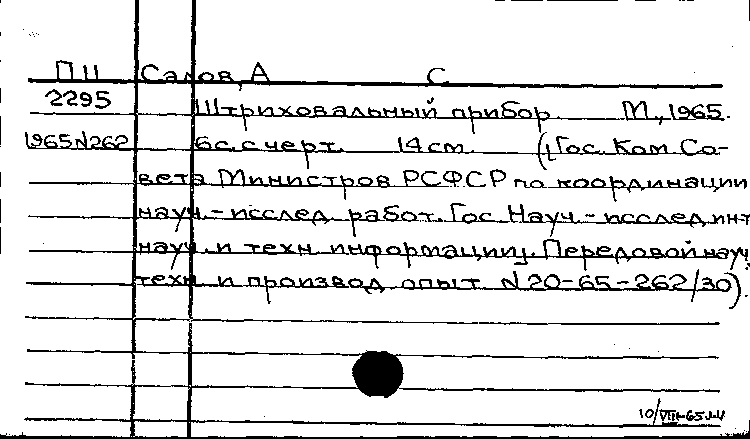 П11 Салов, А С
2295 Штриховальный прибор. М., 1965.
1965N262 6с. с черт. 14 см. (Гос. Ком. Со-
вета Министров РСФСР по координации
науч.-исслед. работ. Гос. Науч.-исслед. инт
науч. и техн. информации. Передовой науч,
техн. и производ. опыт. N20-65-262/30).
10/VIII-65